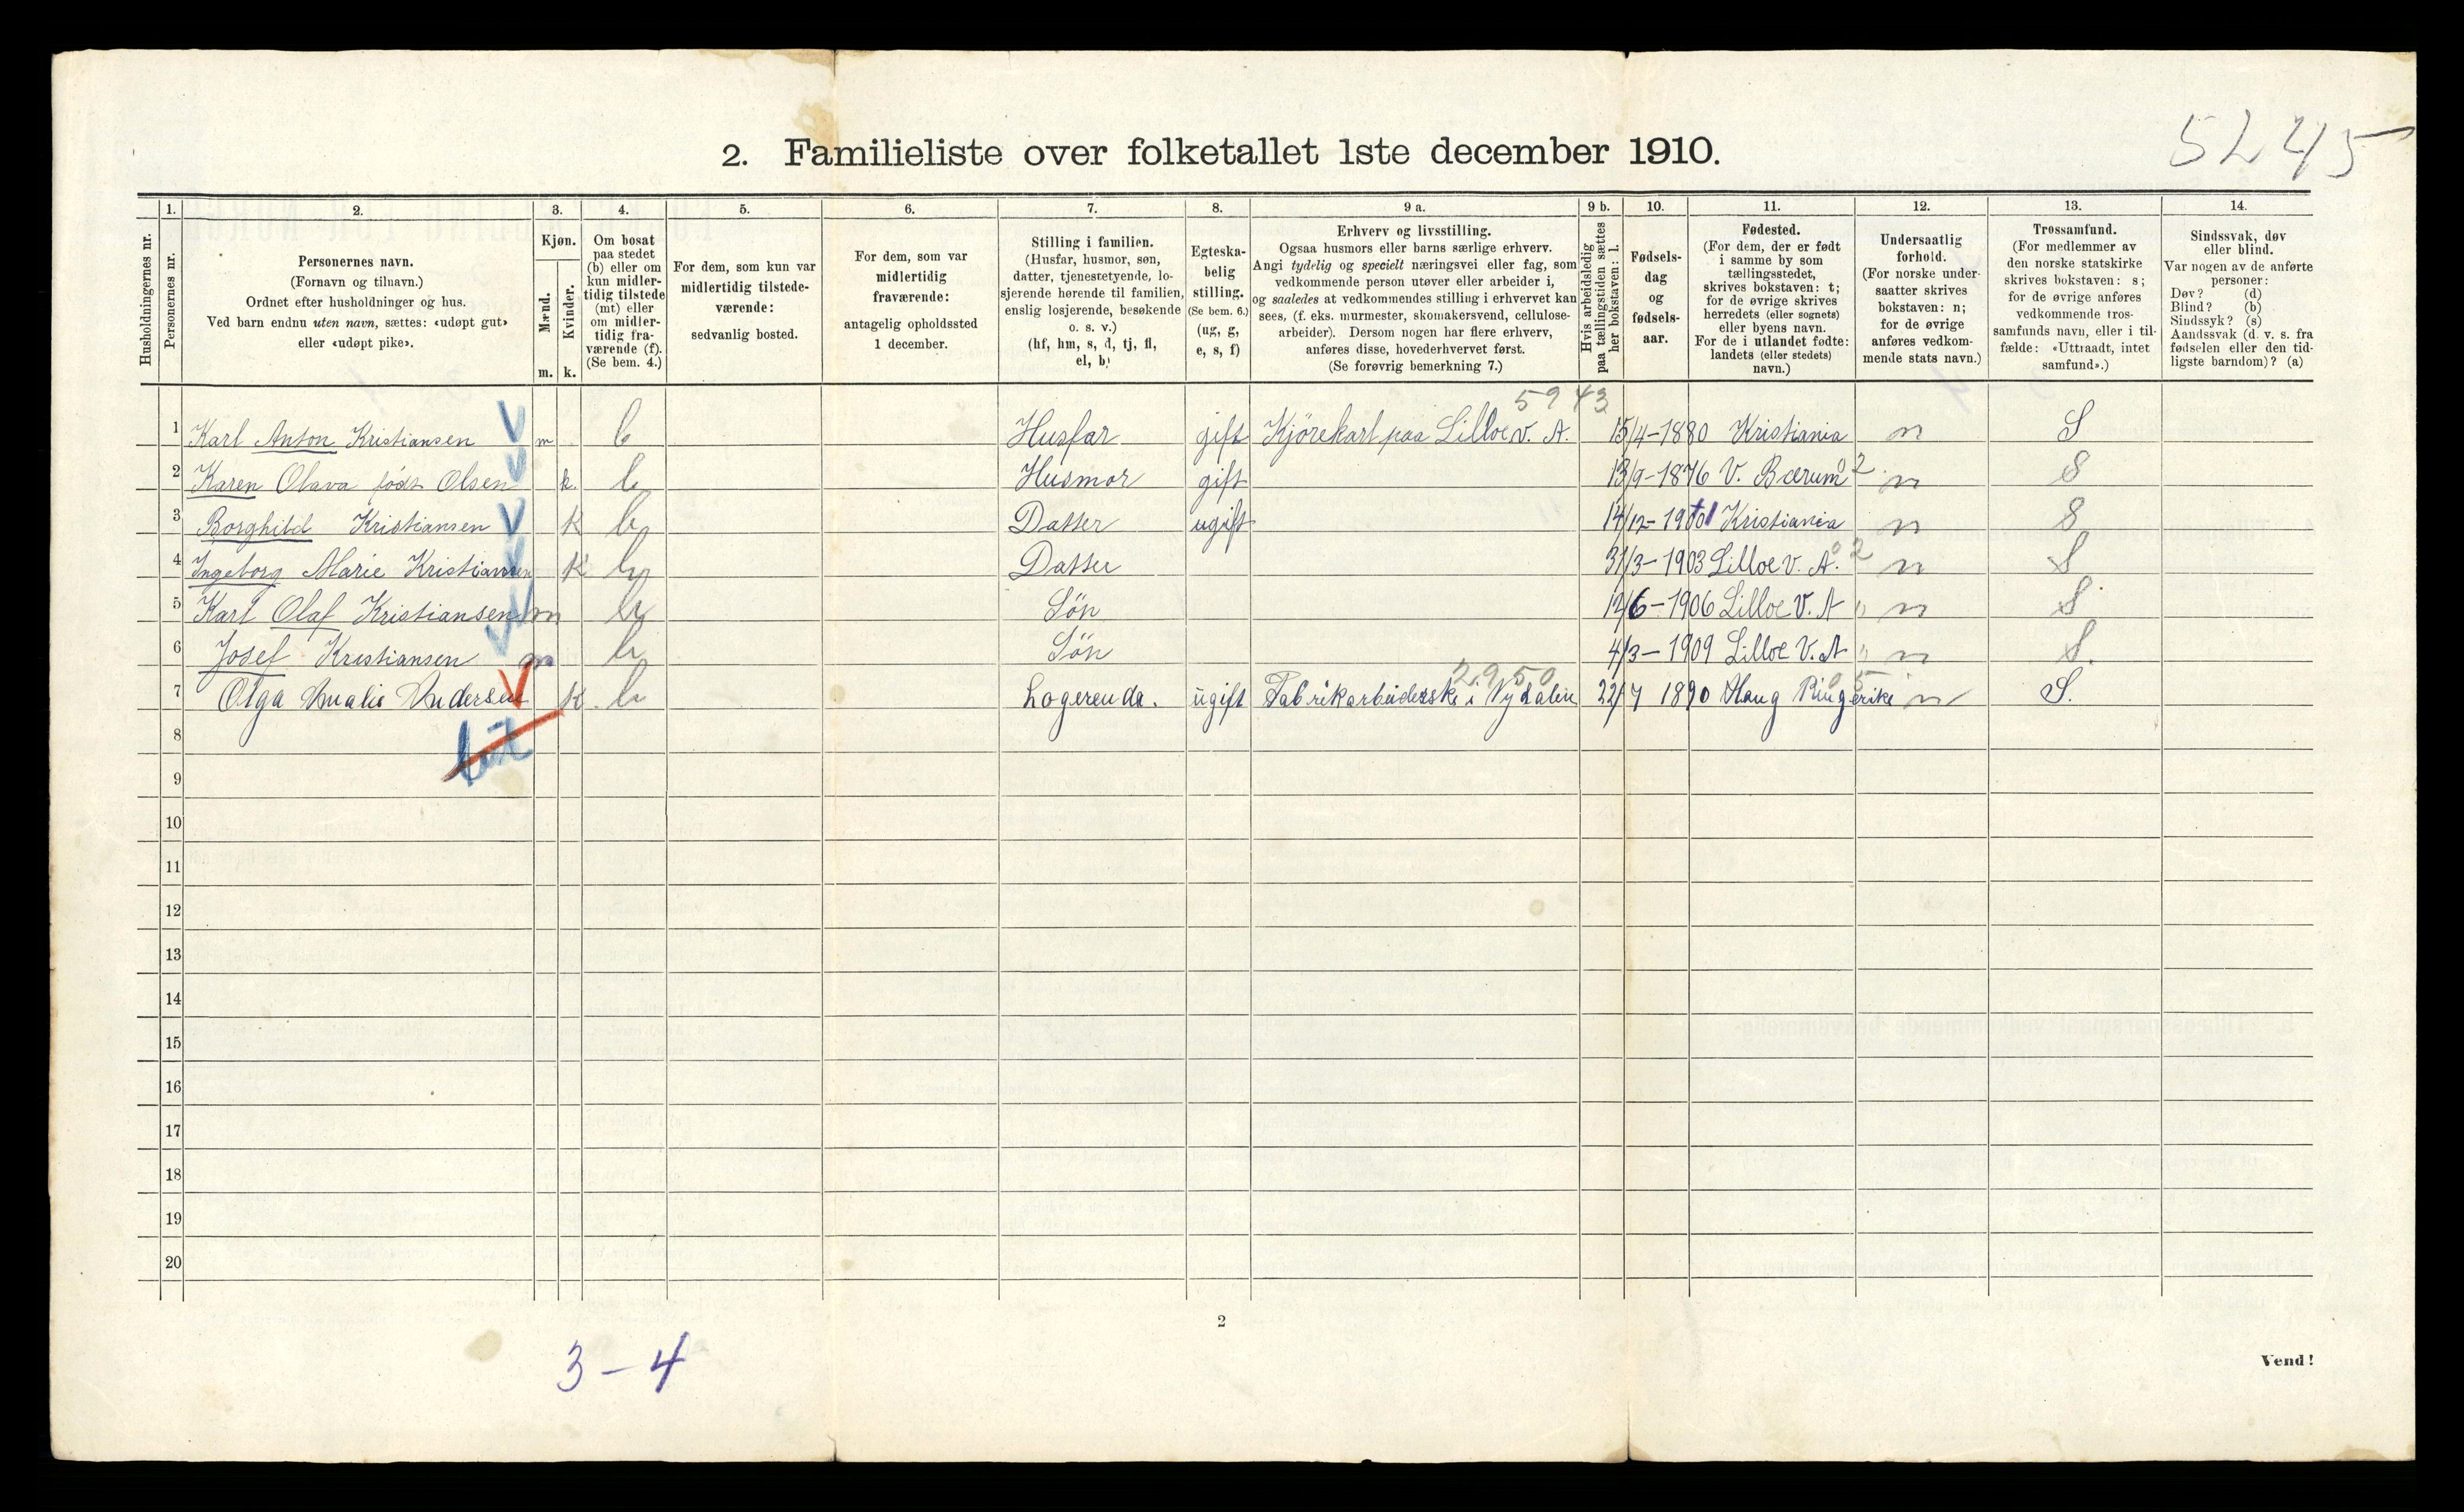 5245
2. Familieliste over folketallet 1ste december 1910.
Husholdningernes nr.
1.
Personernes nr.
2.
Personernes navn.
(Fornavn og tilnavn.)
Ordnet efter husholdninger og hus.
Ved barn endnu uten navn, sættes: «udøpt gut»
eller «udøpt pike».
3.
Kjøn.
Mænd.
Kvinder.
m. k.
4.
Om bosat
paa stedet
(b) eller om
kun midler-
tidig tilstede
(mt) eller
om midler-
tidig fra-
værende (f).
(Se bem. 4.)
5.
For dem, som kun var
midlertidig tilstede-
værende:
sedvanlig bosted.
6.
For dem, som var
midlertidig
fraværende:
antagelig opholdssted
1 december.
7.
Stilling i familien.
(Husfar, husmor, søn,
datter, tjenestetyende, lo-
sjerende hørende til familien,
enslig losjerende, besøkende
o. s. v.)
(hf, hm, s, d, tj, fl,
el, b)
8.
Egteska-
belig
stilling.
(Se bem. 6.)
(ug, g,
e, s, f)
9 a.
Erhverv og livsstilling.
Ogsaa husmors eller barns særlige erhverv.
Angi tydelig og specielt næringsvei eller fag, som
vedkommende person utøver eller arbeider i,
og saaledes at vedkommendes stilling i erhvervet kan
sees, (f. eks. murmester, skomakersvend, cellulose-
arbeider). Dersom nogen har flere erhverv,
anføres disse, hovederhvervet først.
(Se forøvrig bemerkning 7.)
9 b.
Hvis arbeidsledig
paa tællingstiden sættes
her bokstaven: l.
10.
Fødsels-
dag
og
fødsels-
aar.
11.
Fødested.
(For dem, der er født
i samme by som
tællingsstedet,
skrives bokstaven: t;
for de øvrige skrives
herredets (eller sognets)
eller byens navn.
For de i utlandet fødte:
landets (eller stedets)
navn.)
12.
Undersaatlig
forhold.
(For norske under-
saatter skrives
bokstaven: n;
for de øvrige
anføres vedkom-
mende stats navn.)
13.
Trossamfund.
(For medlemmer av
den norske statskirke
skrives bokstaven: s;
for de øvrige anføres
vedkommende tros-
samfunds navn, eller i til-
fælde: «Uttraadt, intet
samfund».)
14.
Sindssvak, døv
eller blind.
Var nogen av de anførte
personer:
Døv? (d)
Blind? (b)
Sindssyk? (s)
Aandssvak (d. v. s. fra
fødselen eller den tid-
ligste barndom)? (a)
5943
1 Karl Anton Kristiansen m b Husfar gift Kjørekarl paa Lilloe V. A. 15/4-1880 Kristiania n S
2 Karen Olava født Olsen k. b Husmor gift 13/9-1876 V. Bærum 02 n S
3 Borghild Kristiansen K b Datter ugift 14/12-1901 Kristiania n S
4 Ingeborg Marie Kristiansen K b Datter 31/3-1903 Lilloe V. A. 02 n S
5 Karl Olaf Kristiansen m b Søn 12/6-1906 Lilloe V. A " n S
6 Josef Kristiansen m b Søn 4/3-1909 Lilloe V. A " n S.
2950 05
7 Olga Amalie Andersen K. b Logerende. ugift Fabrikarbeiderske i Nydalen 22/7 1890 Haug Ringerike n S.
8
9
10
11
12
13
14
15
16
17
18
19
20
2
3-4
Vend!